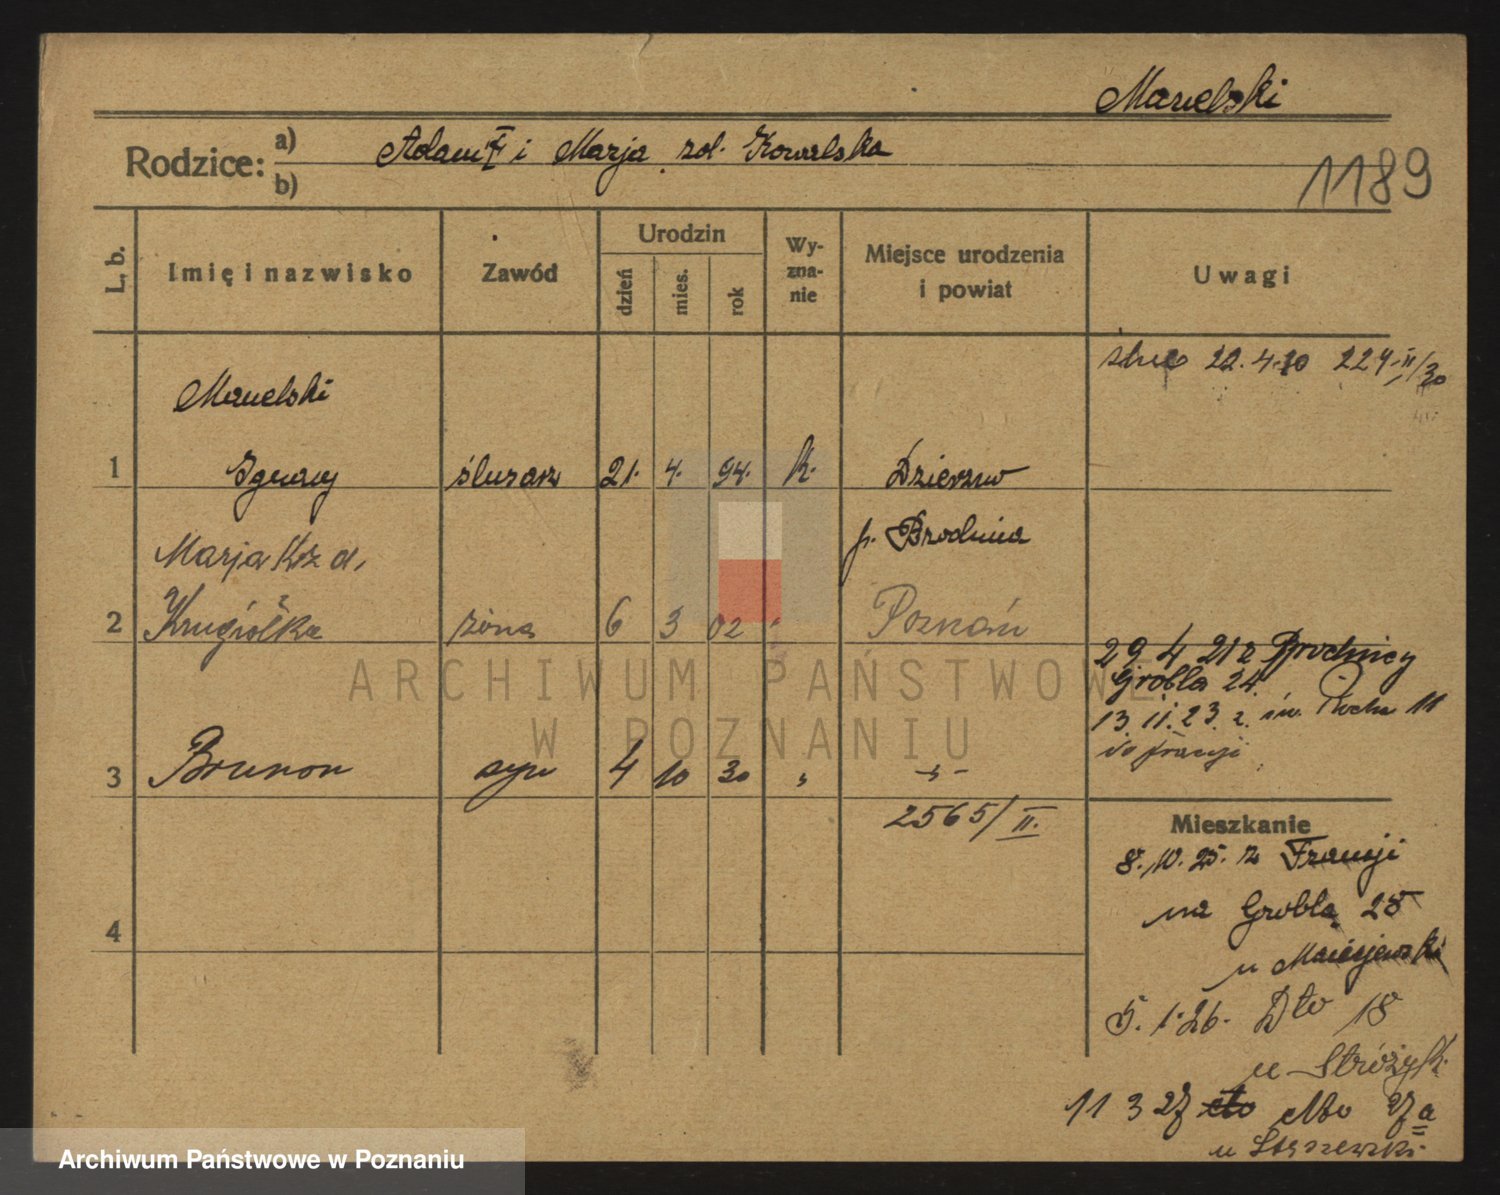 Manelski
Rodzice: a) Adam † i Marja zol. Kowalska
b)
1189
L. b.
Imię i nazwisko
Zawód
Urodzin
dzień
mies.
rok
Wy-
zna-
nie
Miejsce urodzenia
i powiat
Uwagi
22.4.30 224 II/30
Manelski
1 Ignacy ślusarz 21. 4. 94. k. Dzierzno
p. Brodnica
Marja
2 żona 6 3 02 " Poznań
29 4 21 z Brodnicy
Grobla 24.
13.11.23 z. św. Rocha 11
do Francji
3 Brunon syn 4 10 30 " -"-
2565/II.
Mieszkanie
8.10.25. z Francji
na Grobla 28
u Maciejewski
4
5.1.26. Dto 18
u Stróżyk.
11 3 27 dto 27a
ARCHIWUM PAŃSTWOWE
W POZNANIU
Archiwum Państwowe w Poznaniu